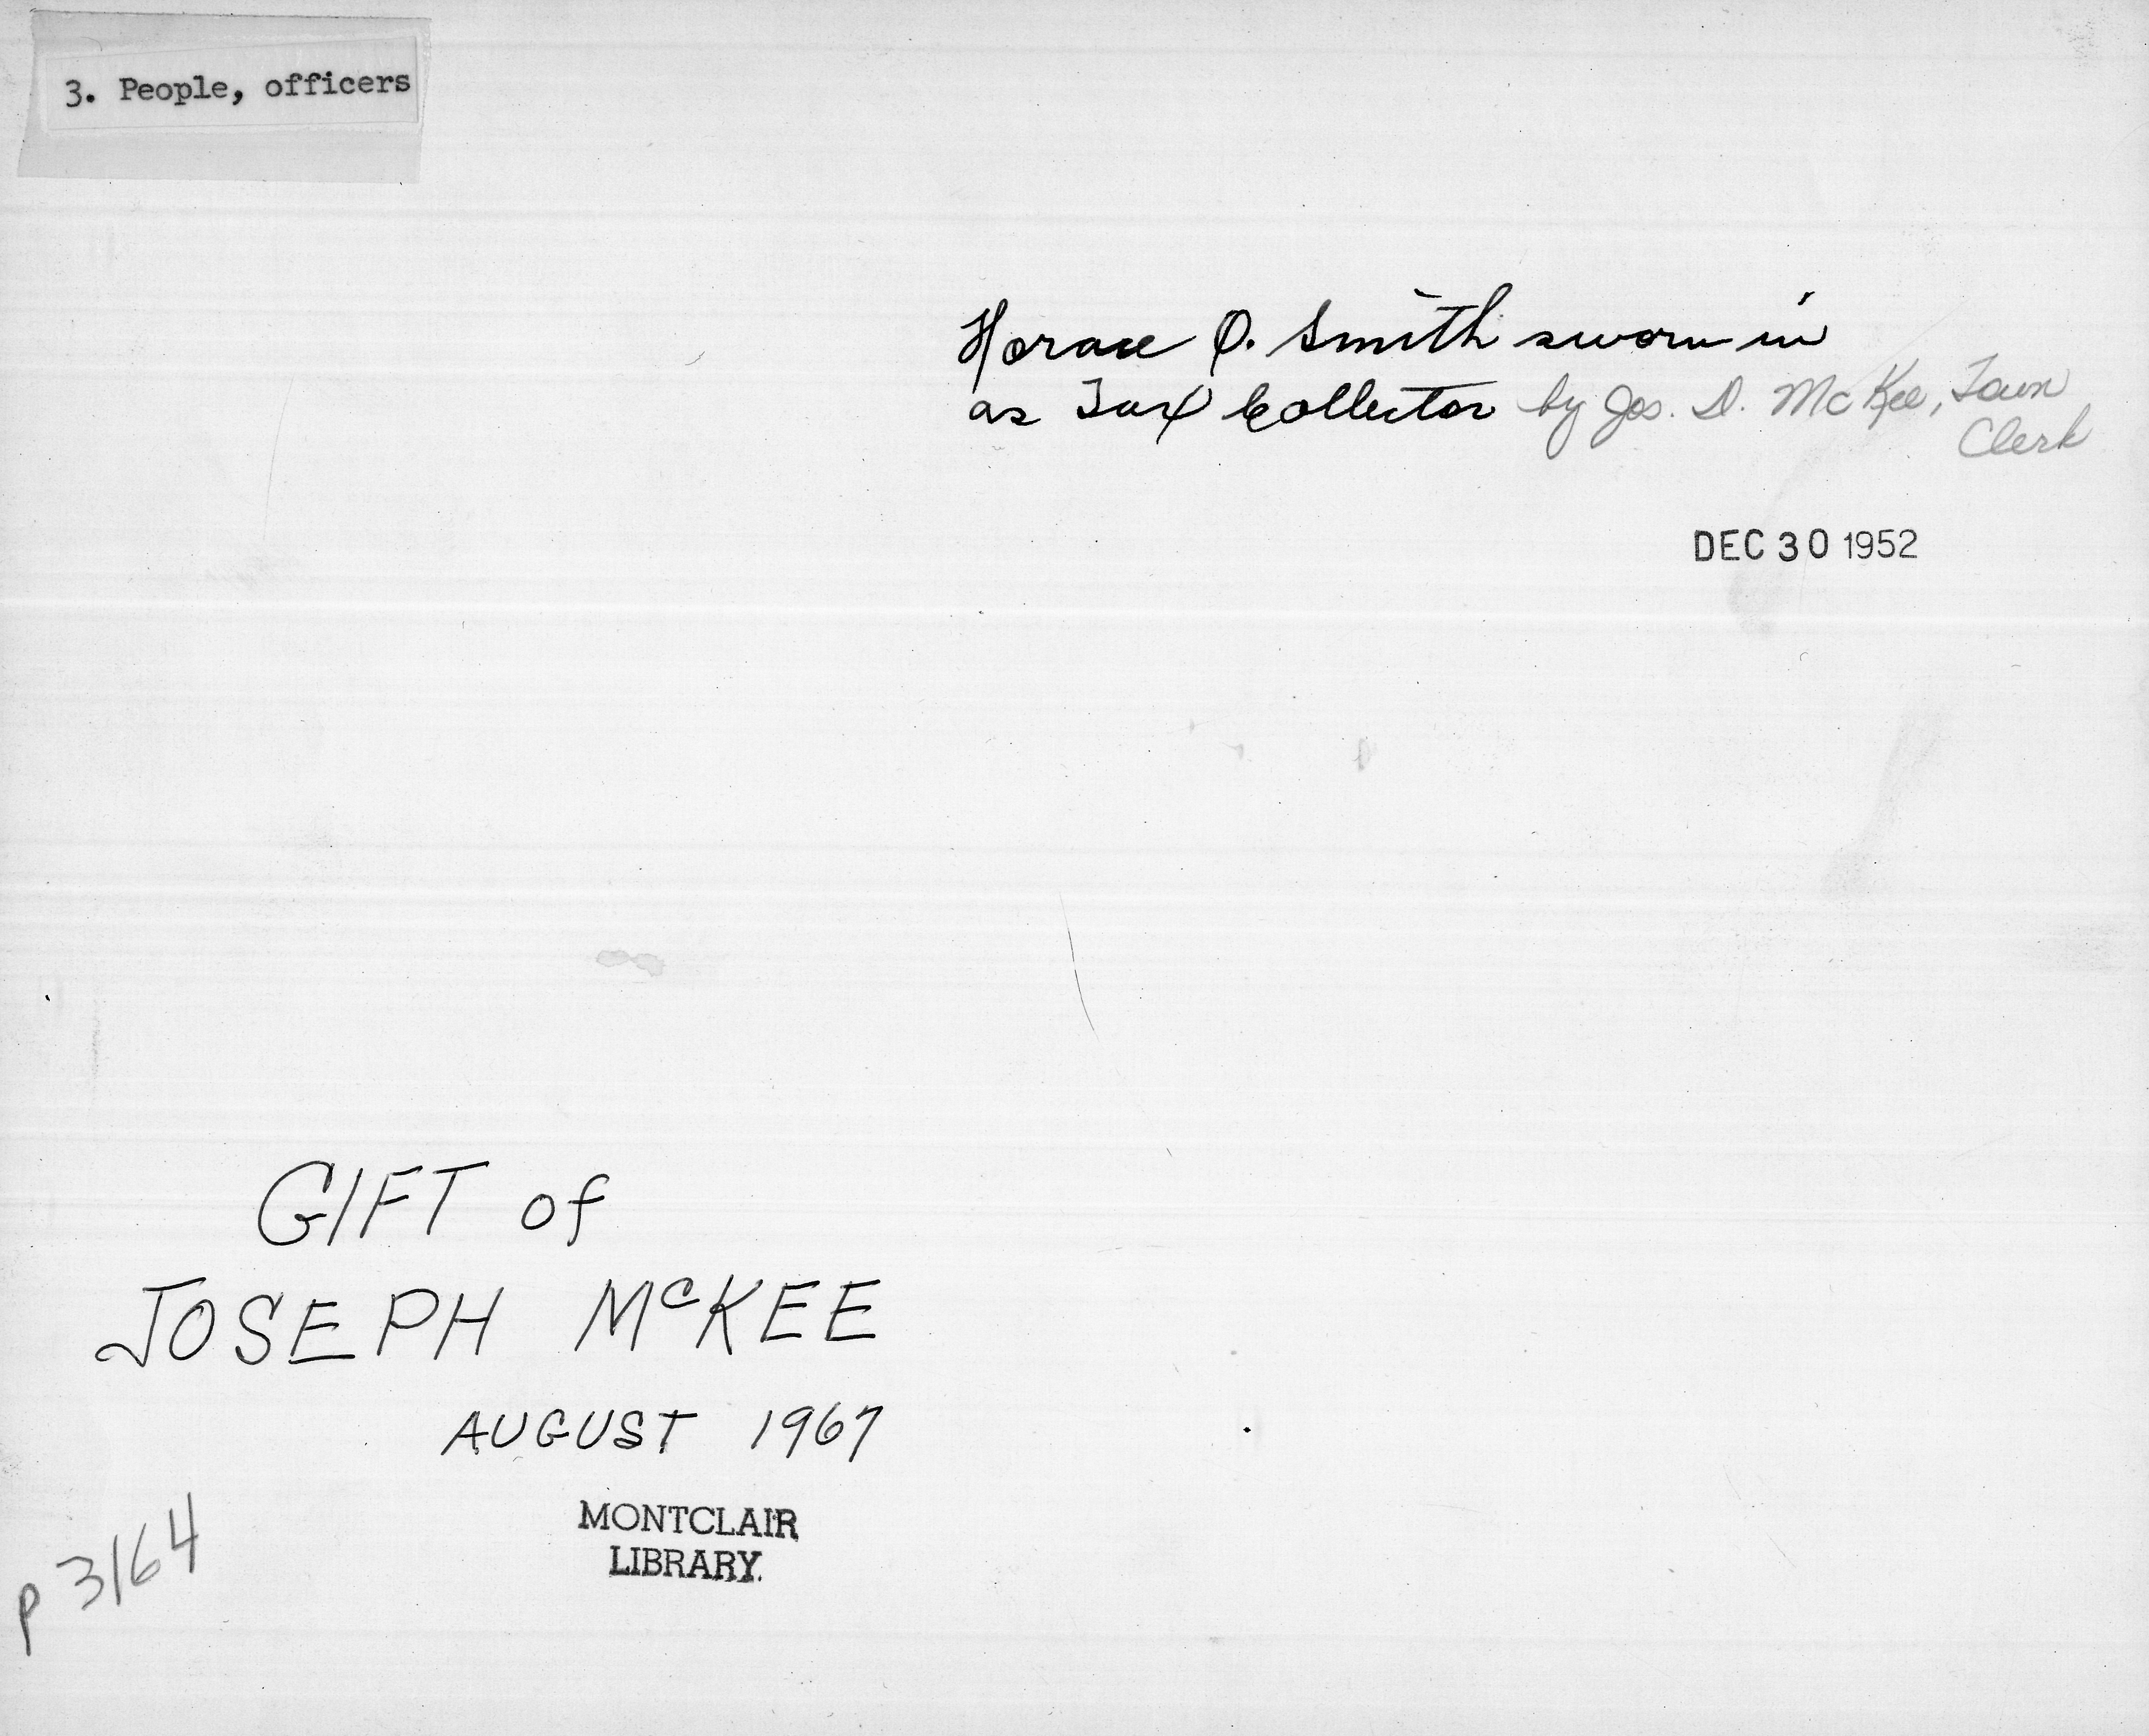 3. People, officers
Horace O. Smith sworn in
as Tax Collector by Jos. D. McKee, Town
Clerk
DEC 30 1952
GIFT of
JOSEPH McKEE
AUGUST 1967
MONTCLAIR
LIBRARY.
p 3164